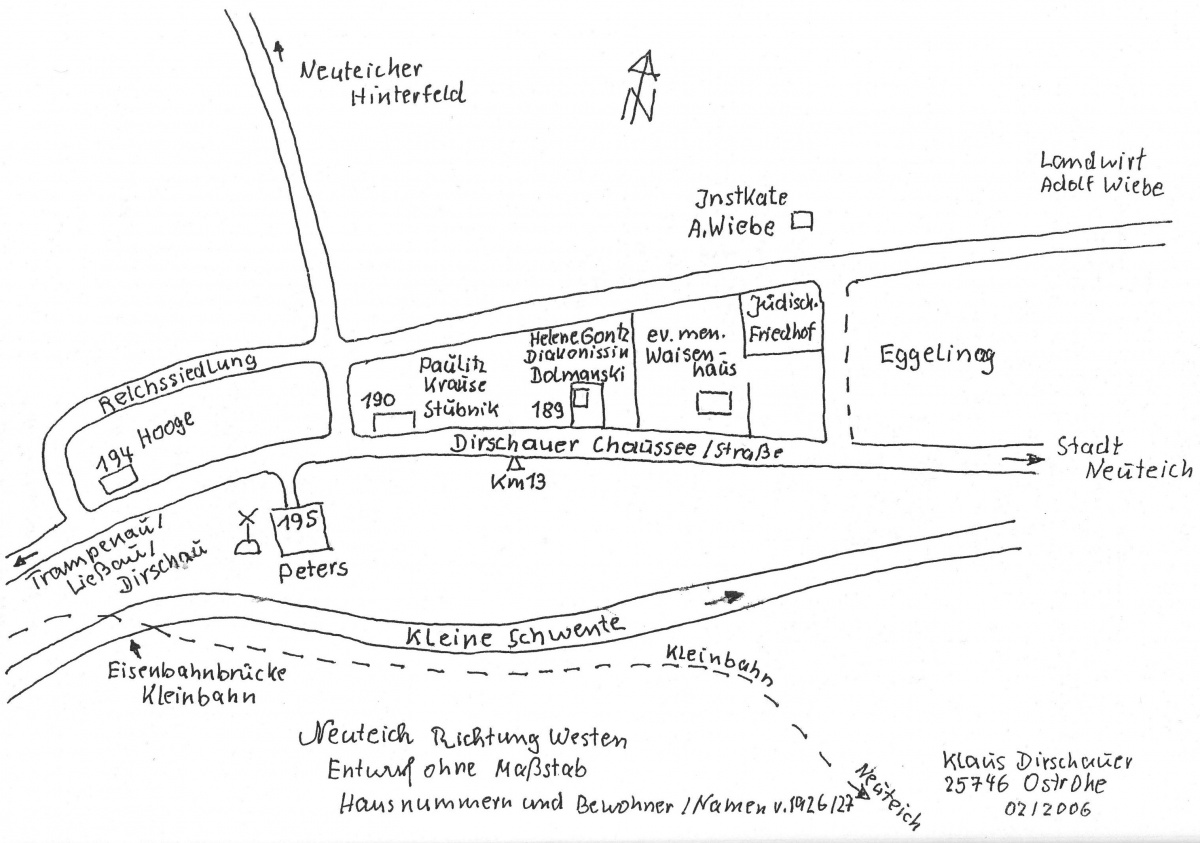 Neuteicher
Hinterfeld
N
Landwirt
Adolf Wiebe
Instkate
A. Wiebe
Jüdisch.
Friedhof
Helene Gontz
Diakonissin
Dolmanski
189
ev. men.
Waisen-
haus
Eggelinag
Reichssiedlung
Paulitz
Krause
Stübnik
190
Hooge
194
Dirschauer Chaussee/Straße
Km13
Stadt
Neuteich
195
Peters
Trampenau/
Ließau/
Dirschau
Kleine Schwente
Kleinbahn
Eisenbahnbrücke
Kleinbahn
Neuteich Richtung Westen
Entwurf ohne Maßstab
Hausnummern und Bewohner/Namen v. 1926/27
Neuteich
Klaus Dirschauer
25746 Ostrohe
02/2006